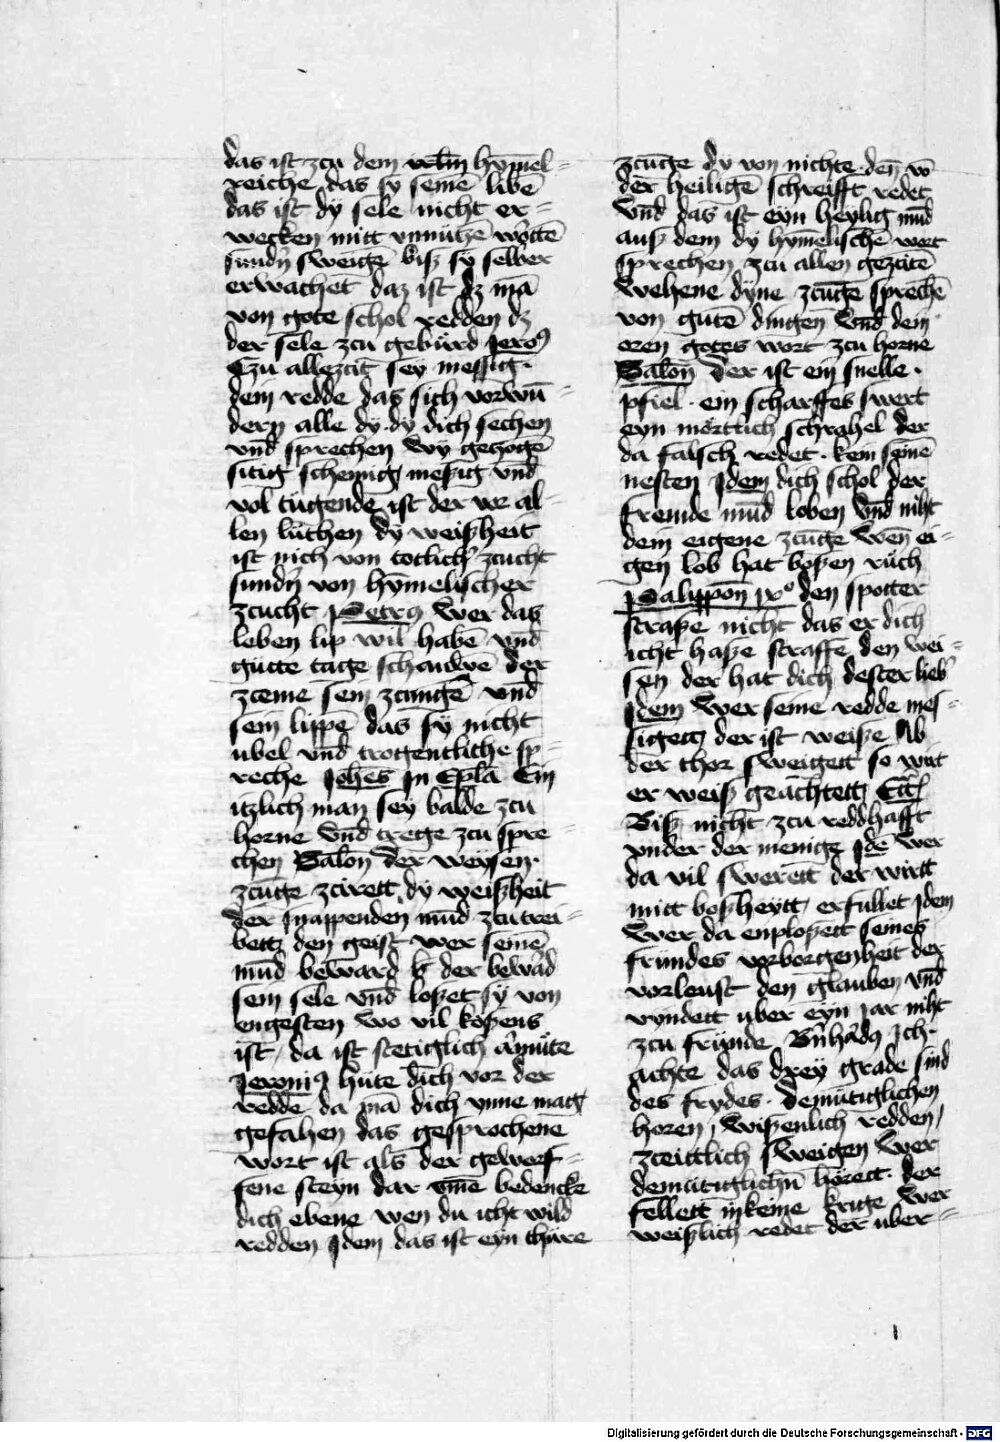 das ist zcu dem vrlin hȳmel-
reiche das sy seinē libē
das ist dy sele nicht er-
wecken mitt vnnütze wortē
sundn̄ sweige bisz sy selber
erwachet daz ist dz mā
von gote schol redden dz
der sele zcu gebürd Jero9
Czu allezcit sey messig.
dein redde das sich vorwū-
dern alle dy dy dich sechen
vnd sprechen wy gezogē
sitig schemig mesig vnd
vol tugende ist der vor al-
len lüthen dy weiszheit
ist nich von totlich' zcucht
sundn̄ von hȳmelischer
zcucht Petrus wer das
leben lip wil habē vnd
gutte tage schauwē der
zceme sein zcungē vnd
sein lippē das sy nicht
ubel vnd trogentliche sp-
reche Johēs In Epl'a Ein
itzlich man sey balde zcu
horne vnd trege zcu spre-
chen Salon Der weysen.
zcüge zciret dy weiszheit
der snappenden mūd zcu trei-
bett den geist wer seinē
mūd beward der bewād
sein sele vnd loszet sy von
engesten wo vil kosens
ist / da ist stetiglich armüte
Jeroni9 hüte dich vor der
redde da mā dich ynne mag
gefahen das gesprochene
wort ist als der geworf-
fene steyn dar vm̄e bedencke
dich ebene wen du icht wild
redden Idem das ist eyn thüre
zcuge dy von nichte den vō
der heiligē schreifft redet
vnd das ist eyn heylig mūd
aus dem dy hymelische wort
sprechen zcu allen gezcitē
wehene dyne zcüge sprechē
von gutē dingen vnd dein
oren gotes wort zcu horne
Salon Der ist ein snelle.
pfiel. ein scharffes swert
eyn mörtlich schrahel der
da falsch redet. kein seinē
nesten Idem dich schol der
fremde mūd loben vnd niht
dein eigene zcüge wen ei-
gen lob hat boszen rüch
Salippon ix° den spotter
strasze nicht das er dich
icht hasze straffe den wei-
sen der hat dich dester lieb'
Idem Wer seine redde mes-
sigett der ist weisze Ab
der thor sweigett so wirt
er weisz geachtett Ecc'
Bisz nicht zcu reddhafft
vnder der menige Idē wer
da vil swerett der wirtt
mitt boszheytt erfullet Idem
Wer da enploszett seines
frundes vorborgenheit der
vorleust den glauben vnd
vyndett uber eyn jar niht
zcu fründe Bn̄hād9 Ich.
achte das drey grade sind
des frydes. Demütiglichen
horen, wiszenlich redden,
zceittlich sweigen wer
demütiglichn̄ hörett. der
fellett in keine krige wer
weiszlich redet der uber-
1
Digitalisierung gefördert durch die Deutsche Forschungsgemeinschaft - DFG